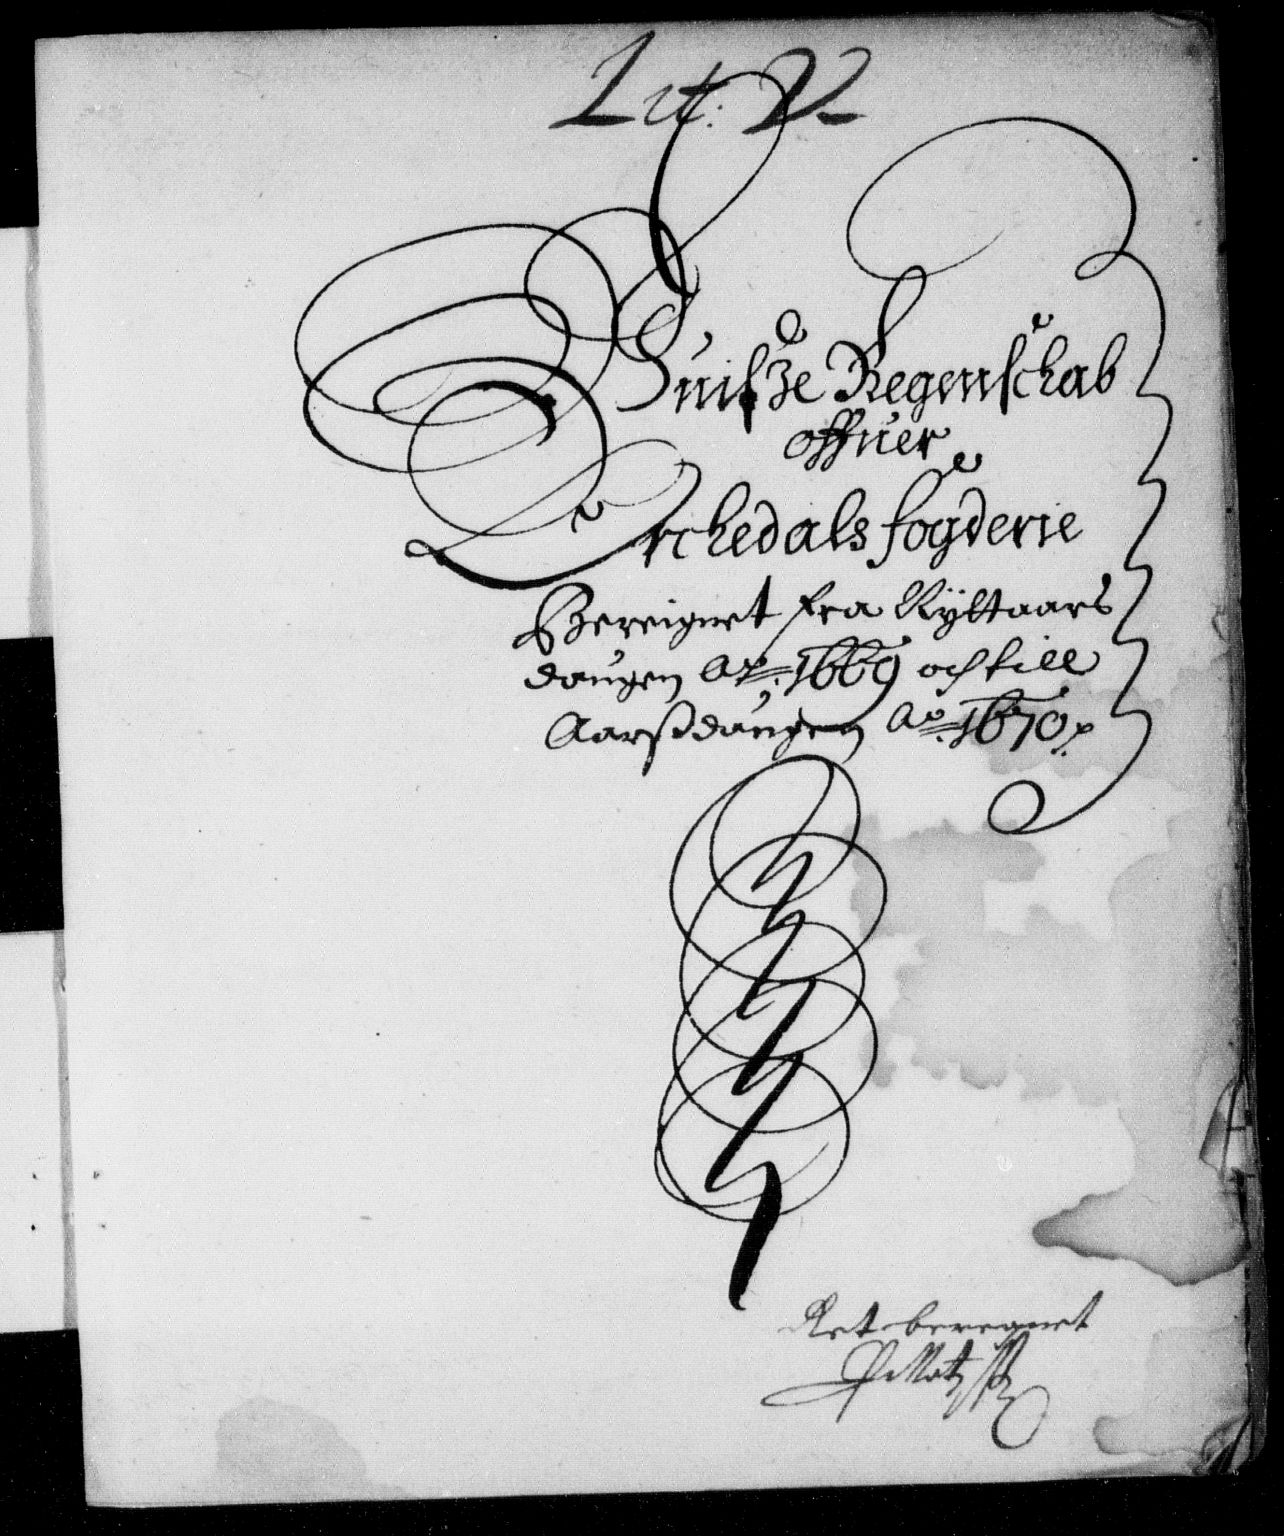 Lit: V
Suifze Regenschab
offuer
Orchedals fogderie
Bereignet fra Nÿttaars
daugen Ao. 1669 och till
Aarsdaugen Ao. 1670
Ret beregnet